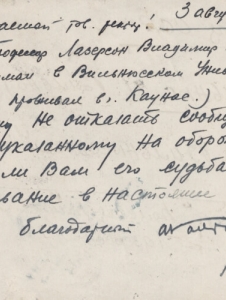 3 авгу
важаемый тов. ректор!
рофессор Лазерсон Владимир
ботал в Вильнюсском Унив
проживал в г. Каунас.)
шу Не отказать сообщ
указанному На оборо
ли Вам его судьба
ование в настояще
благодарный